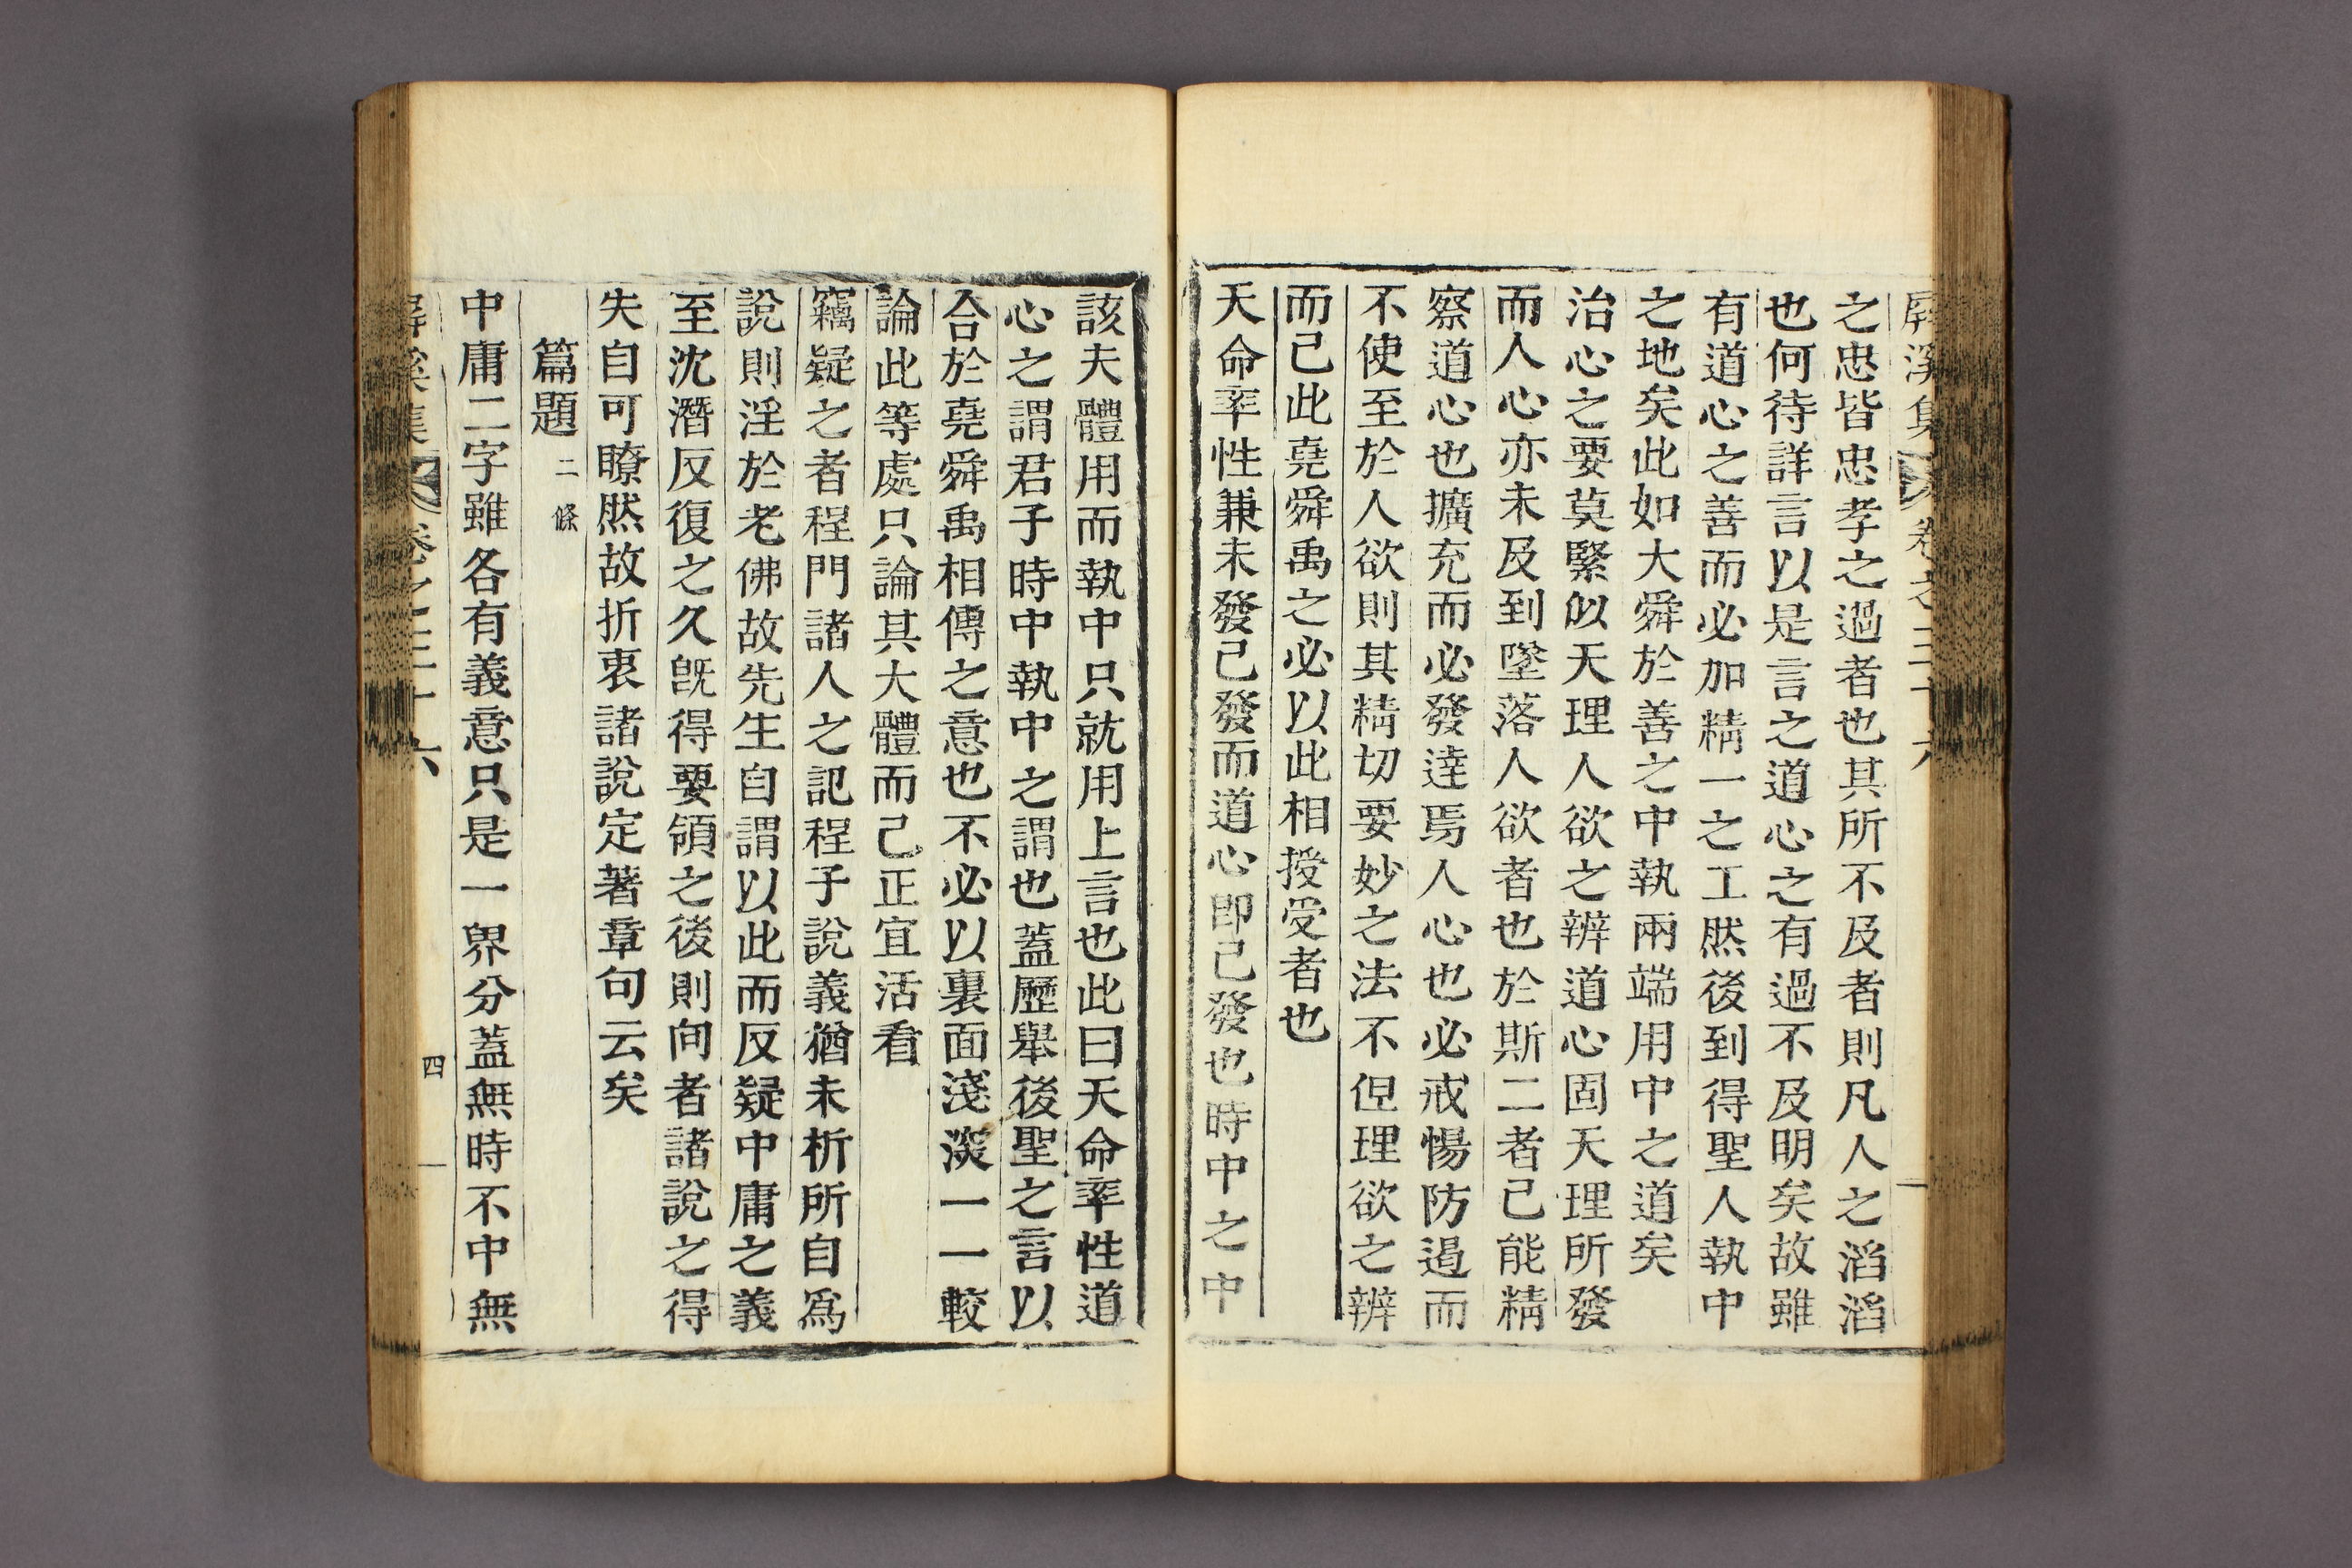 屛溪集 卷之三十六
之忠皆忠孝之過者也其所不及者則凡人之滔滔
也何待詳言以是言之道心之有過不及明矣故雖
有道心之善而必加精一之工然後到得聖人執中
之地矣此如大舜於善之中執兩端用中之道矣
治心之要莫緊似天理人欲之辨道心固天理所發
而人心亦未及到墜落人欲者也於斯二者已能精
察道心也擴充而必發達焉人心也必戒惕防遏而
不使至於人欲則其精切要妙之法不但理欲之辨
而已此堯舜禹之必以此相授受者也
天命率性兼未發已發而道心卽已發也時中之中
該夫體用而執中只就用上言也此曰天命率性道
心之謂君子時中執中之謂也蓋歷舉後聖之言以
合於堯舜禹相傳之意也不必以裏面淺深一一較
論此等處只論其大體而已正宜活看
竊疑之者程門諸人之記程子說義猶未析所自爲
說則淫於老佛故先生自謂以此而反疑中庸之義
至沈潛反復之久旣得要領之後則向者諸說之得
失自可瞭然故折衷諸說定著章句云矣
篇題 二條
中庸二字雖各有義意只是一界分蓋無時不中無
屛溪集 卷之三十六 四